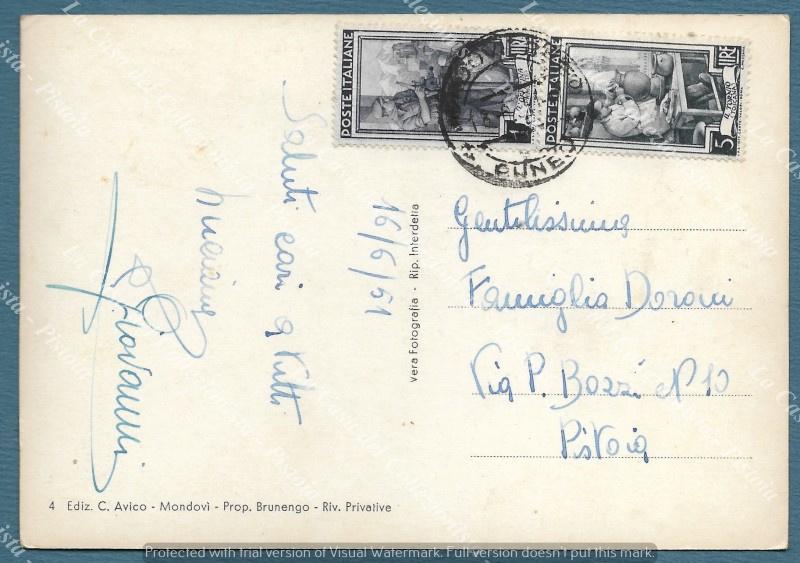 POSTE ITALIANE
1 LIRE
POSTE ITALIANE
5 LIRE
CUNEO
Saluti cari a tutti
16/6/51
Giovanni
Gentilissima
Famiglia Doroni
Via P. Bozzi N° 10
Pistoia
Vera Fotografia - Rip. Interdetta
4 Ediz. C. Avico - Mondovì - Prop. Brunengo - Riv. Privative
Protected with trial version of Visual Watermark. Full version doesn't put this mark.